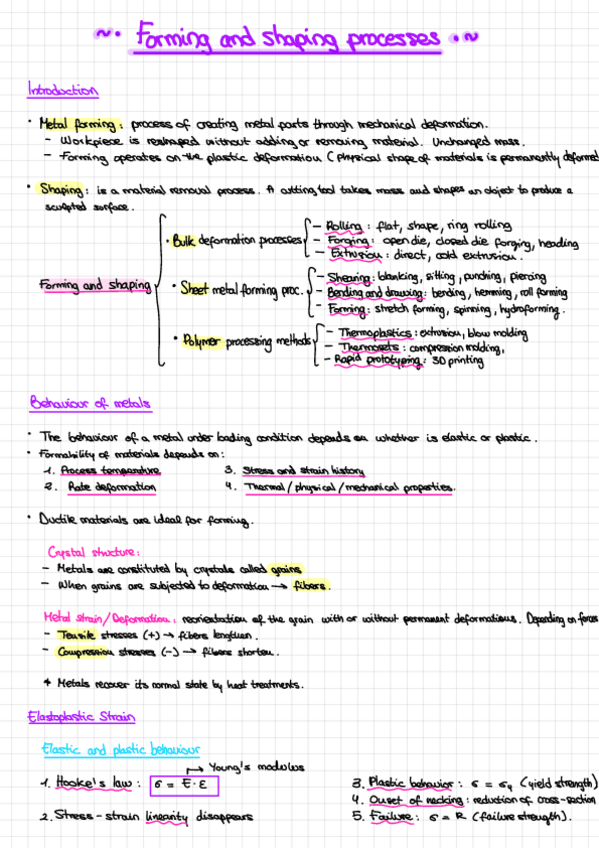 ~• Forming and shaping processes •~
Introduction
• Metal forming: process of creating metal parts through mechanical deformation.
– Workpiece is reshaped without adding or removing material. Unchanged mass.
– Forming operates on the plastic deformation (physical shape of materials is permanently deformed
• Shaping: is a material removal process. A cutting tool takes mass and shapes an object to produce a
sculpted surface.
Forming and shaping
• Bulk deformation processes
– Rolling: flat, shape, ring rolling
– Forging: open die, closed die forging, heading
– Extrusion: direct, cold extrusion.
• Sheet metal forming proc.
– Shearing: blanking, slitting, punching, piercing
– Bending and drawing: bending, hemming, roll forming
– Forming: stretch forming, spinning, hydroforming.
• Polymer processing methods
– Thermoplastics: extrusion, blow molding
– Thermosets: compression molding,
– Rapid prototyping: 3D printing
Behaviour of metals
• The behaviour of a metal under loading condition depends on whether is elastic or plastic.
• Formability of materials depends on:
1. Process temperature 3. Stress and strain history
2. Rate deformation 4. Thermal/physical/mechanical properties.
• Ductile materials are ideal for forming.
Crystal structure:
– Metals are constituted by crystals called grains
– When grains are subjected to deformation → fibers.
Metal strain/Deformation: reorientation of the grain with or without permanent deformations. Depending on forces
– Tensile stresses (+) → fibers lengthen.
– Compression stresses (–) → fibers shorten.
* Metals recover its normal state by heat treatments.
Elastoplastic Strain
Elastic and plastic behaviour
→ Young's modulus
1. Hooke's law: σ = E · ε
2. Stress-strain linearity disappears
3. Plastic behavior: σ = σy (yield strength)
4. Onset of necking: reduction of cross-section
5. Failure: σ = R (failure strength).